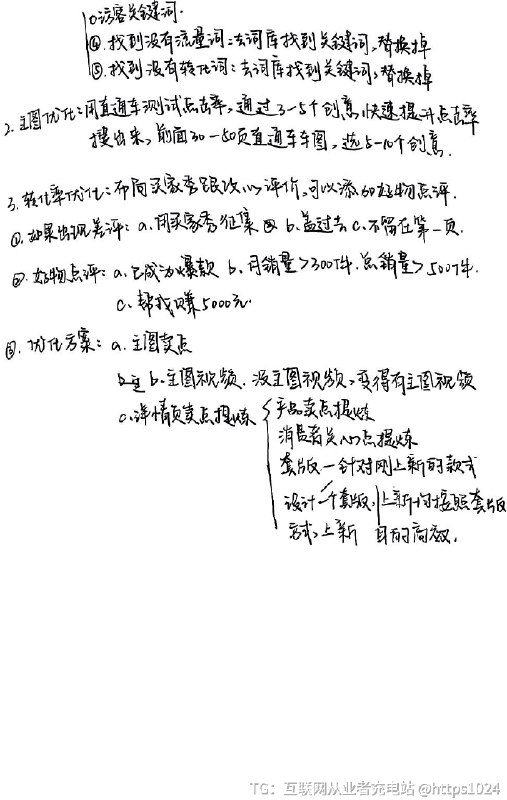 访客关键词.
④. 找到没有流量词:去词库找到关键词,替换掉
⑤. 找到没有转化词:去词库找到关键词,替换掉
2. 主图优化:用直通车测试点击率,通过3-5个创意,快速提升点击率
搜出来,前面30-50页直通车车图,选5-10个创意.
3. 转化率优化:布局买家秀跟改心评价,可以添加好物点评.
①. 如果出现差评:a. 用买家秀征集 b. 盖过去 c. 不留在第一页.
②. 好物点评:a. 已成为爆款 b. 月销量>300件. 总销量>500件.
c. 帮找赚5000元.
③. 优化方案:a. 主图卖点
b. 主图视频. 没主图视频,变得有主图视频
c. 详情页卖点提炼 产品卖点提炼
消费者关心点提炼
套版—针对刚上新的款式
设计一个套版, 上新均按照套版
方式上新 目的高效.
TG:互联网从业者充电站@https1024